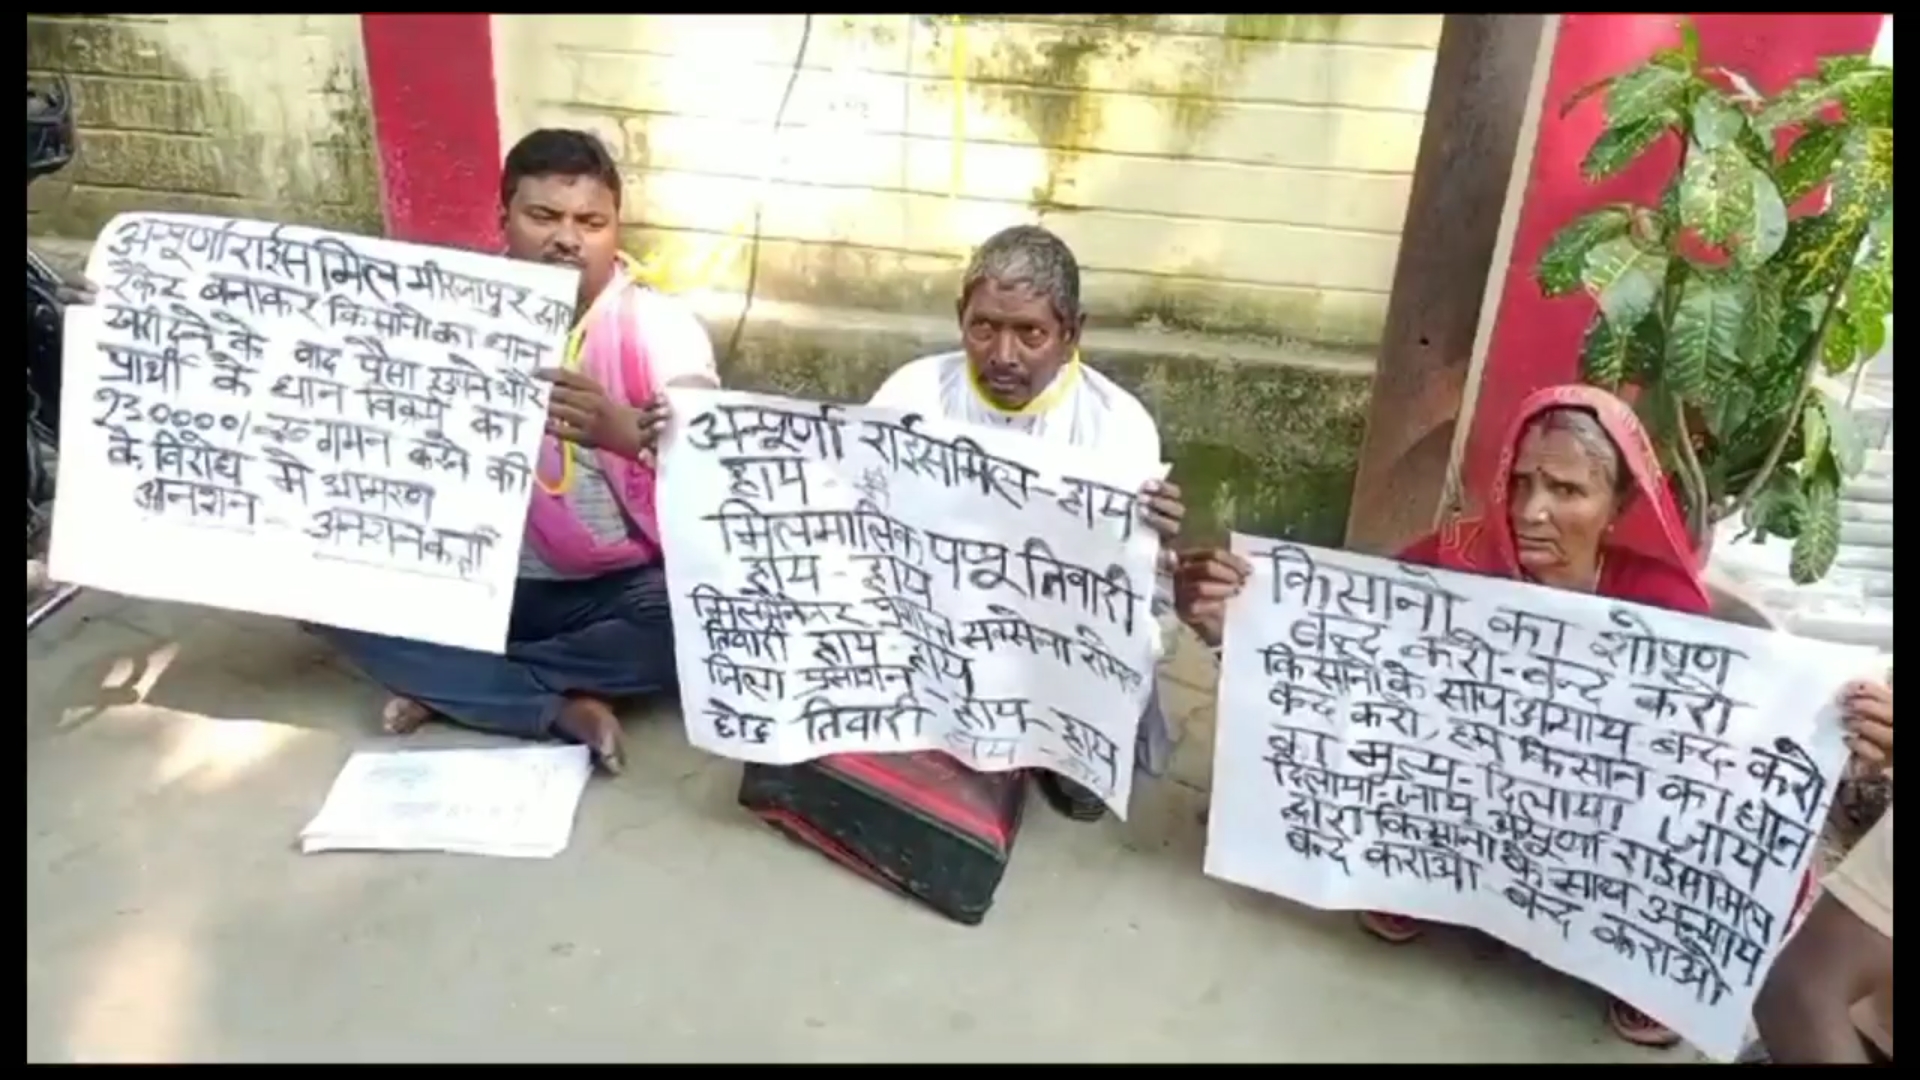 अन्पूर्णा राईस मिल मीरजापुर द्वारा
रैकेट बनाकर किसानो का धान
खरीदने के बाद पैसा हड़पने और
प्रार्थी के धान विक्रय का
230000/-रू0 गमन करने की
के विरोध मे आमरण
अनशन - अनशनकर्ता
अन्पूर्णा राईसमिल-हाय
हाय -
मिलमालिक पप्पू तिवारी
हाय - हाय
तिवारी हाय - हाय
जिला प्रशासन
तिवारी हाय - हाय
हाय -
किसानो का शोषण
बन्द करो-बन्द करो
किसानो के साथ अन्याय बन्द करो
बन्द करो, हम किसान का धान
का मूल्य-दिलाया जाय
दिलाया जाय अन्पूर्णा राईसमिल
द्वारा किसानो के साथ अन्याय
बन्द कराओ बन्द कराओ